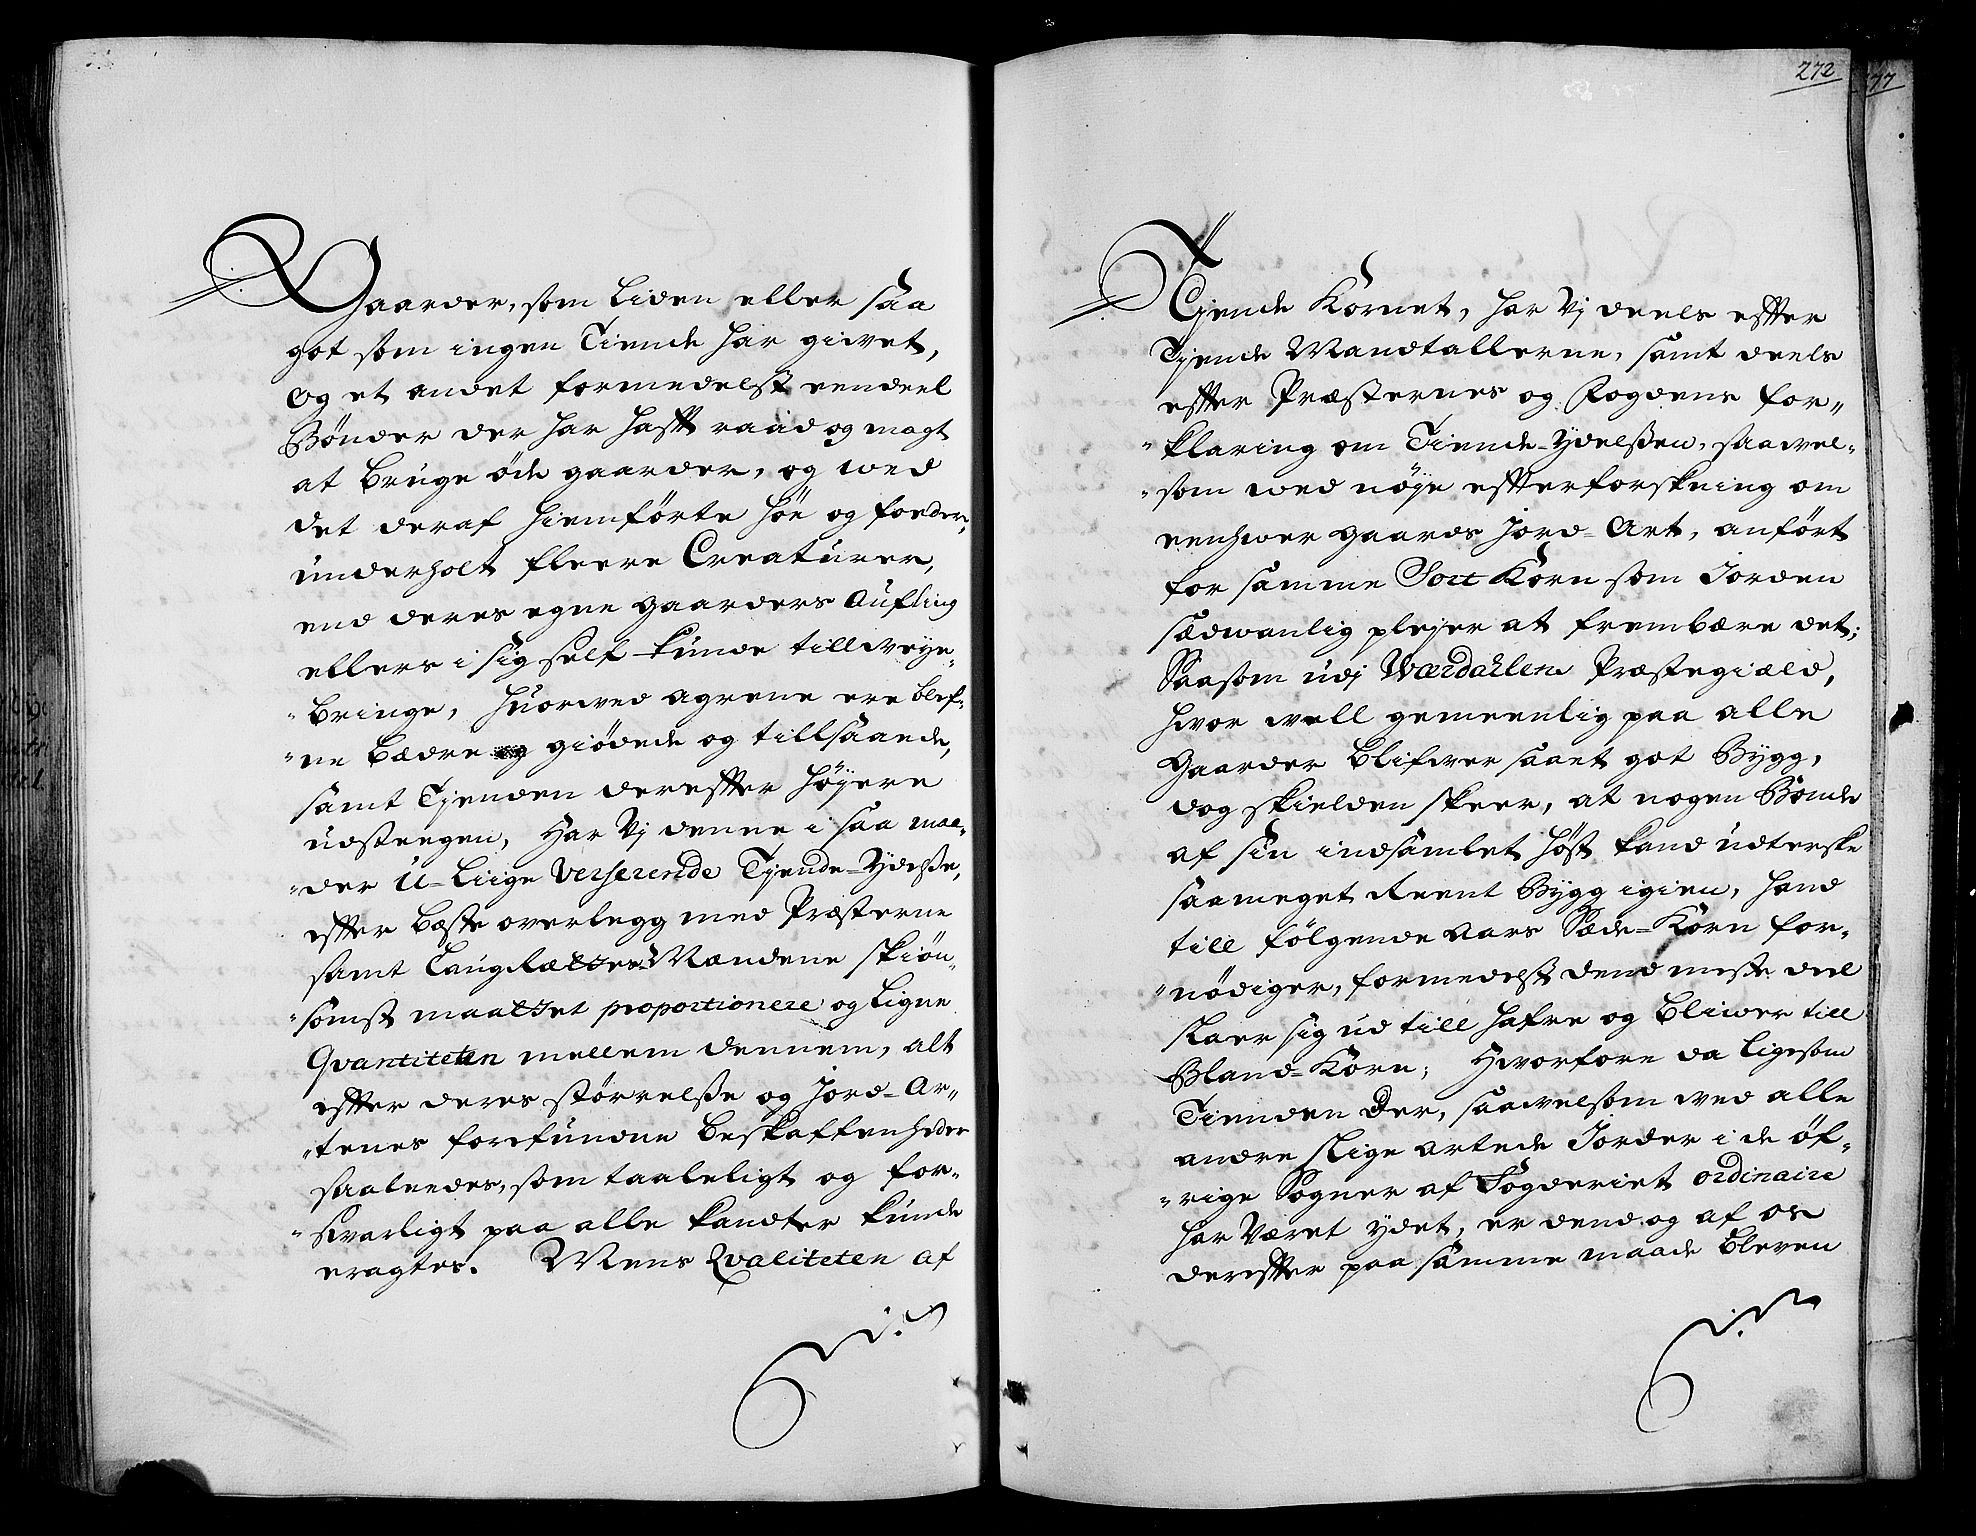 Gaarder, som liden eller saa
got som ingen Tiende har givet,
og et andet formedelst eendeel
Bønder der har hafft raad og magt
at bruge øde gaarder, og wed
det deraf hiemførte høe og foeder,
underholt fleere Creaturer,
end deres egne gaarders Aufling
ellers i sig self kunde tillweye„
„bringe, huorwed agrene ere blef„
„ne bædre giødede og tillsaaede,
samt Tjenden derefter høyere
udsteegen, Har Vj denne i saa maa„
„der U=liige Verserende Tjende=Ydelße,
effter bæste overlegg med Præsterne
samt LaugRættes Mændene skiøn„
„somst maattet proportionere og ligne
Qvantiteten mellem dennem, alt
effter deres størrelße og Jord=Ar„
„tenes forefundne beskaffenheder
saaleedes, som taaleligt og for„
„svarligt paa alle kandter kunde
eragtes. Mens Qvaliteten af
272
77
Tjende Kornet, har Vj deels effter
Tjende Mandtallerne, samt deels
effter Præsternes og Fogdens for„
„klaring om Tiende-Ydelßen, saawel„
„som wed nøje effterforskning om
eenhwer gaards Jord=Art, anført
for samme Sort Korn som Jorden
sædwanlig plejer at frembære det;
Saasom udj Wærdahlens Præstegiæld,
hvor well gemeenlig paa alle
Gaarder blifwer saaet got Bygg,
dog skielden skeer, at nogen Bonde
af sin indsamlet høst kand udterske
saameget Reent Bygg igien, hand
till følgende Aars Sæde=Korn for„
„nødiger, formedelst dend meste deel
slaer sig ud till hafre og bliwer till
Bland=Korn; Hvorfore da ligesom
Tienden Der, saawelsom wed alle
andre slige artede Jorder i de øf„
„rige Sogner af Fogderiet ordinaire
har Været ydet, er dend og af os
dereffter paa samme maade bleven